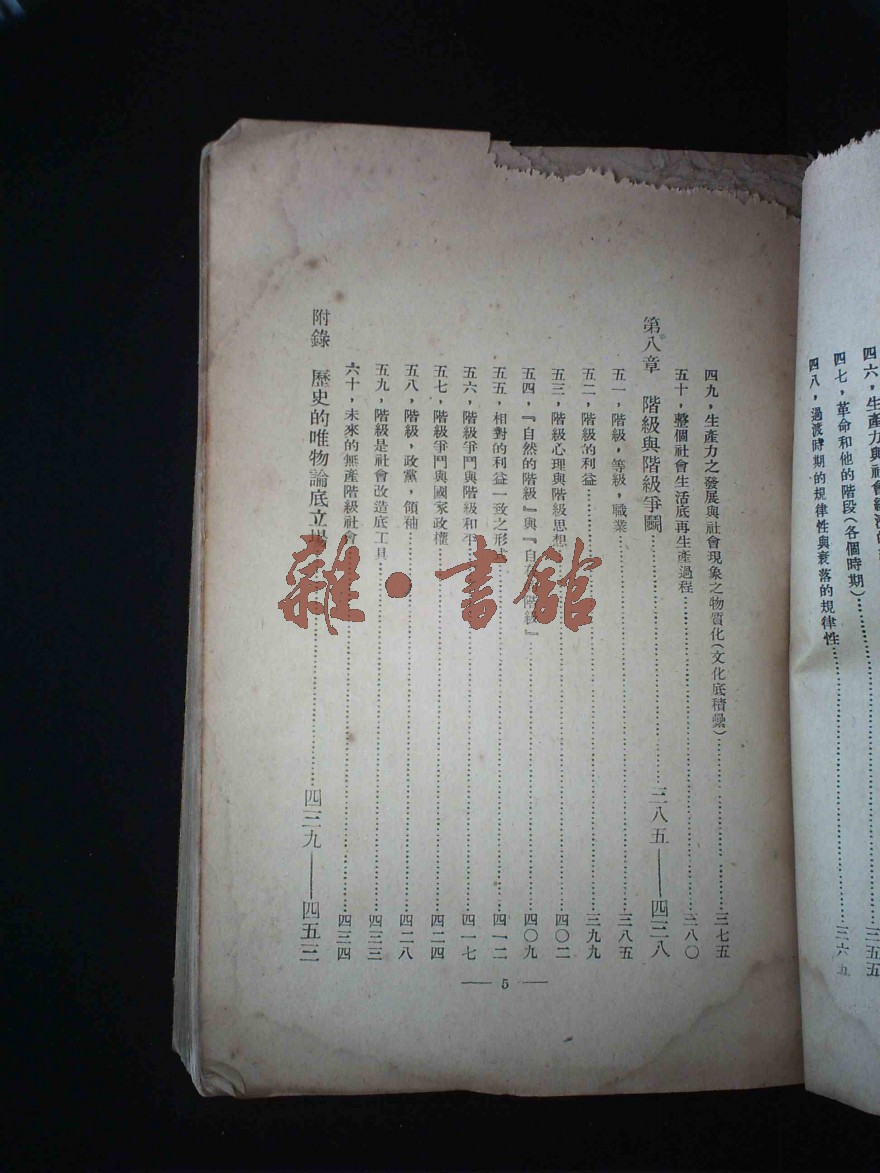 四六，生產力與社會經濟的
四七，革命和他的階段（各個時期）……三五五
四八，過渡時期的規律性與衰落的規律性……三六九
四九，生產力之發展與社會現象之物質化（文化底積纍）……三七五
五十，整個社會生活底再生產過程……三八〇
第八章 階級與階級爭鬭……三八五——四三八
五一，階級，等級，職業……三八五
五二，階級的利益……三九九
五三，階級心理與階級思想……四〇二
五四，『自然的階級』與『自在的階級』……四〇九
五五，相對的利益一致之形式……四一二
五六，階級爭鬥與階級和平……四一七
五七，階級爭鬥與國家政權……四二四
五八，階級，政黨，領袖……四二八
五九，階級是社會改造底工具……四三三
六十，未來的無產階級社會……四三四
附錄 歷史的唯物論底立場……四三九——四五三
— 5 —
雜·書館